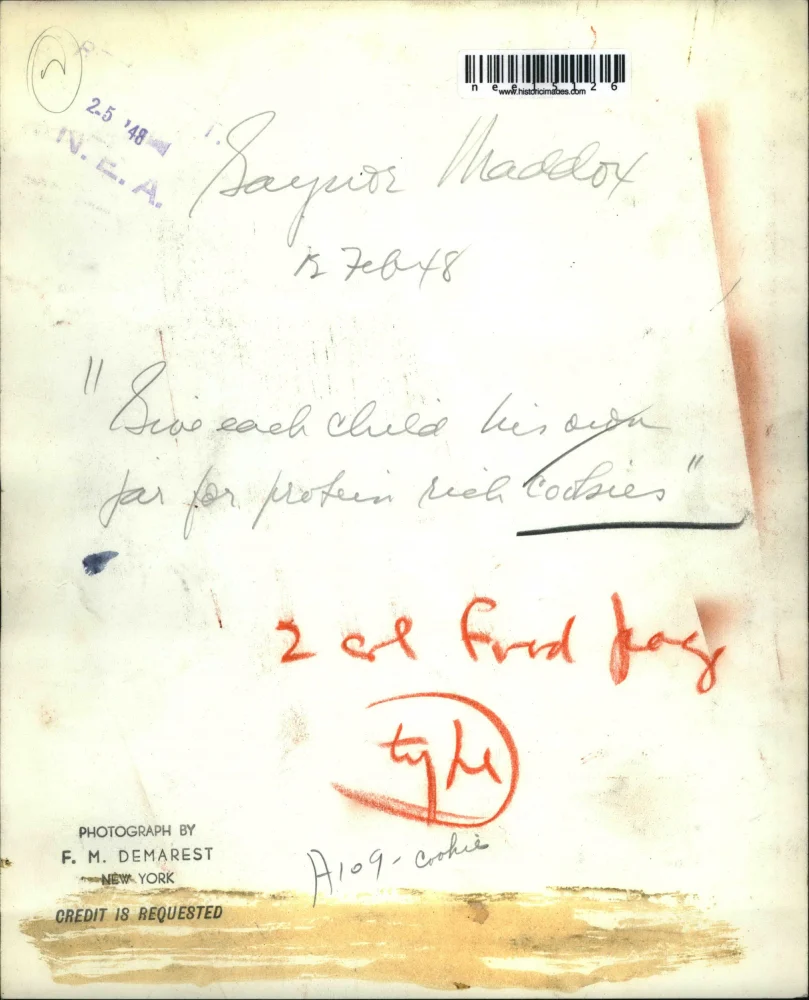 nee15126
www.historicimages.com
2-5 '48
N.E.A.
Gaynor Maddox
12 Feb 48
"Give each child his own
jar for protein rich cookies"
2 col Food page
type
PHOTOGRAPH BY
F. M. DEMAREST
NEW YORK
CREDIT IS REQUESTED
A109 - cookie